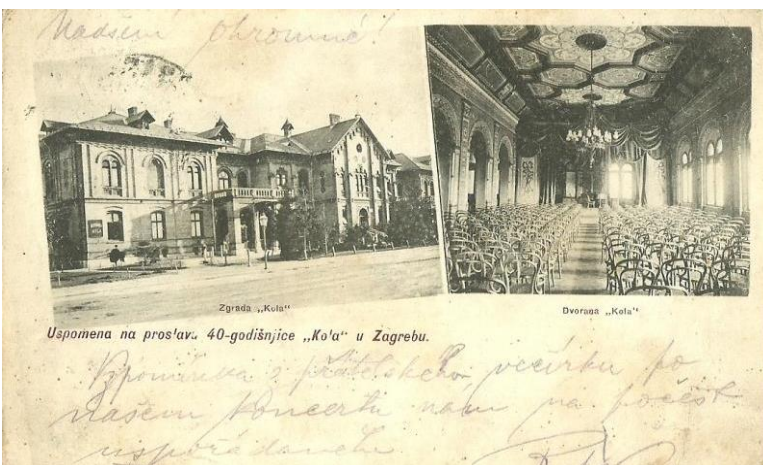 Nadšení ohromné!
Zgrada „Kola“
Dvorana „Kola“
Uspomena na proslavu 40-godišnjice „Kola“ u Zagrebu.
Vzpomínka z přátelského večírku po
našem koncertu nám na počest
uspořádaném